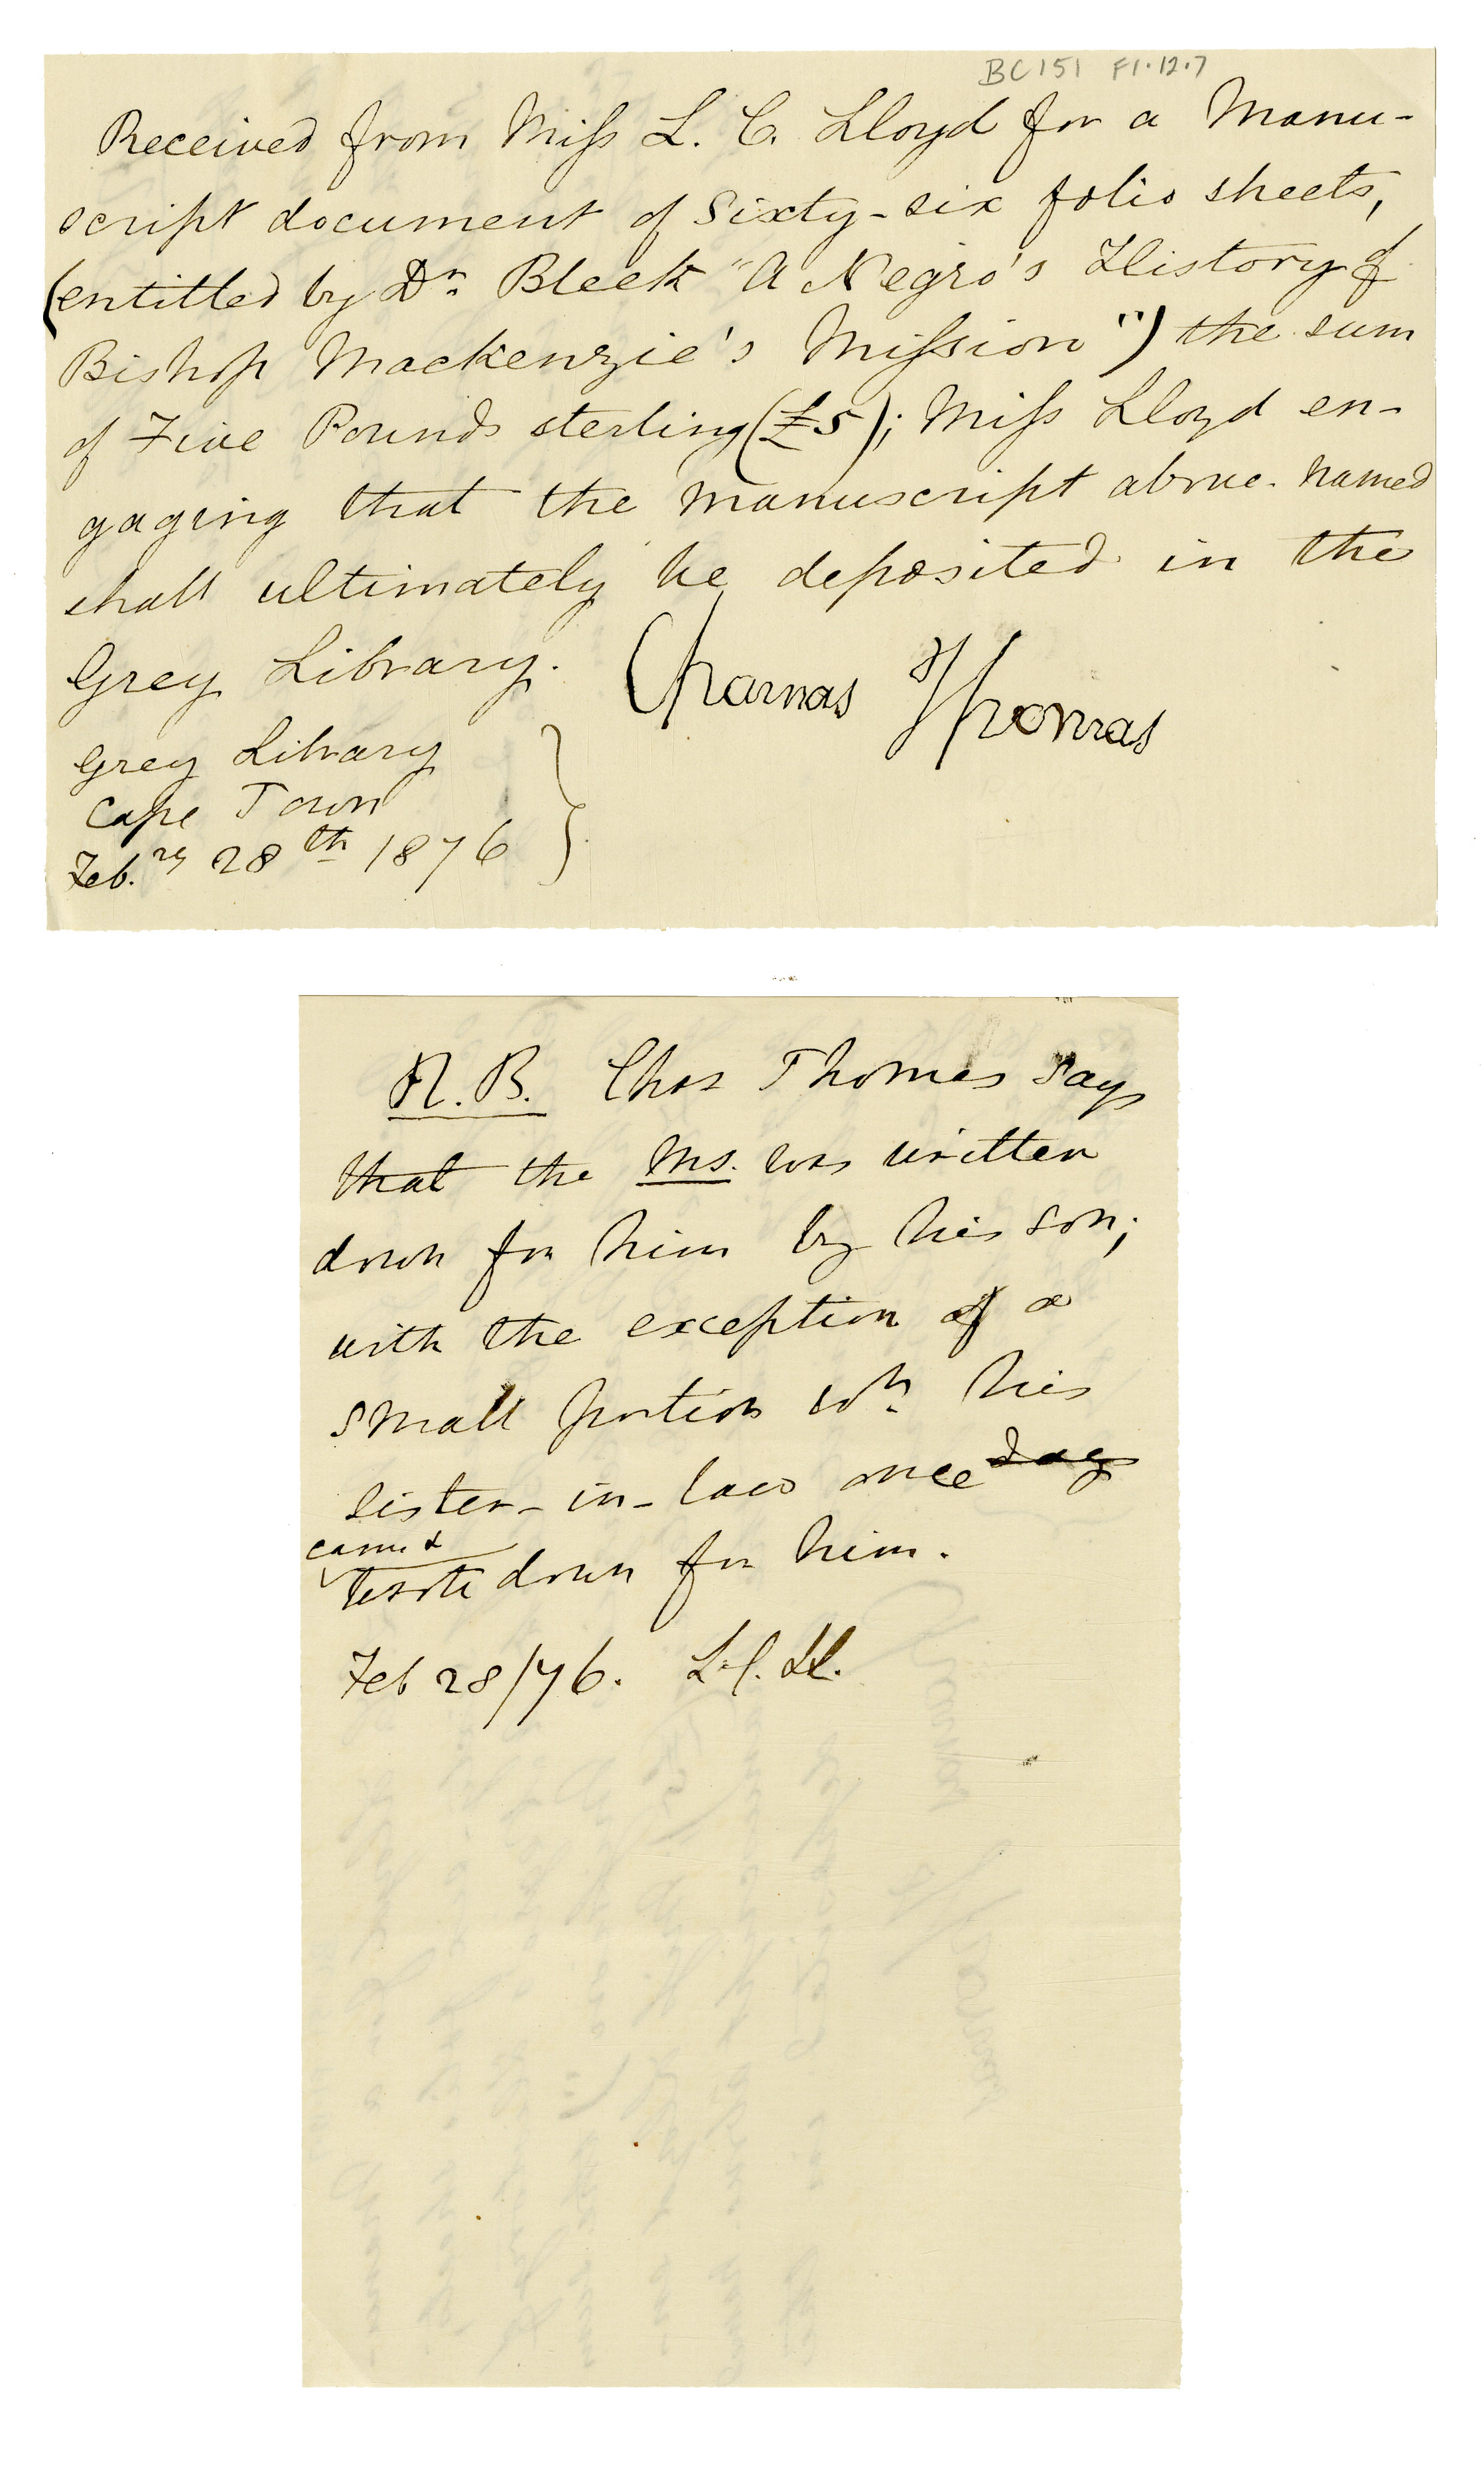 BC151 F1.12.7
Received from Miss L. C. Lloyd for a Manu-
script document of Sixty-six folio sheets,
(entitled by Dr. Bleek "A Negro's History of
Bishop Mackenzie's Mission") the sum
of Five Pounds sterling (£5); Miss Lloyd en-
gaging that the manuscript above-named
shall ultimately be deposited in the
Grey Library.
Charnas Thomas
Grey Library
Cape Town
Feb.ry 28th 1876
N.B. Chas Thomas says
that the Ms. was written
down for him by his son;
with the exception of a
small portion wh. his
sister-in-law once day
came &
wrote down for him.
Feb 28/76. L.C. Ll.